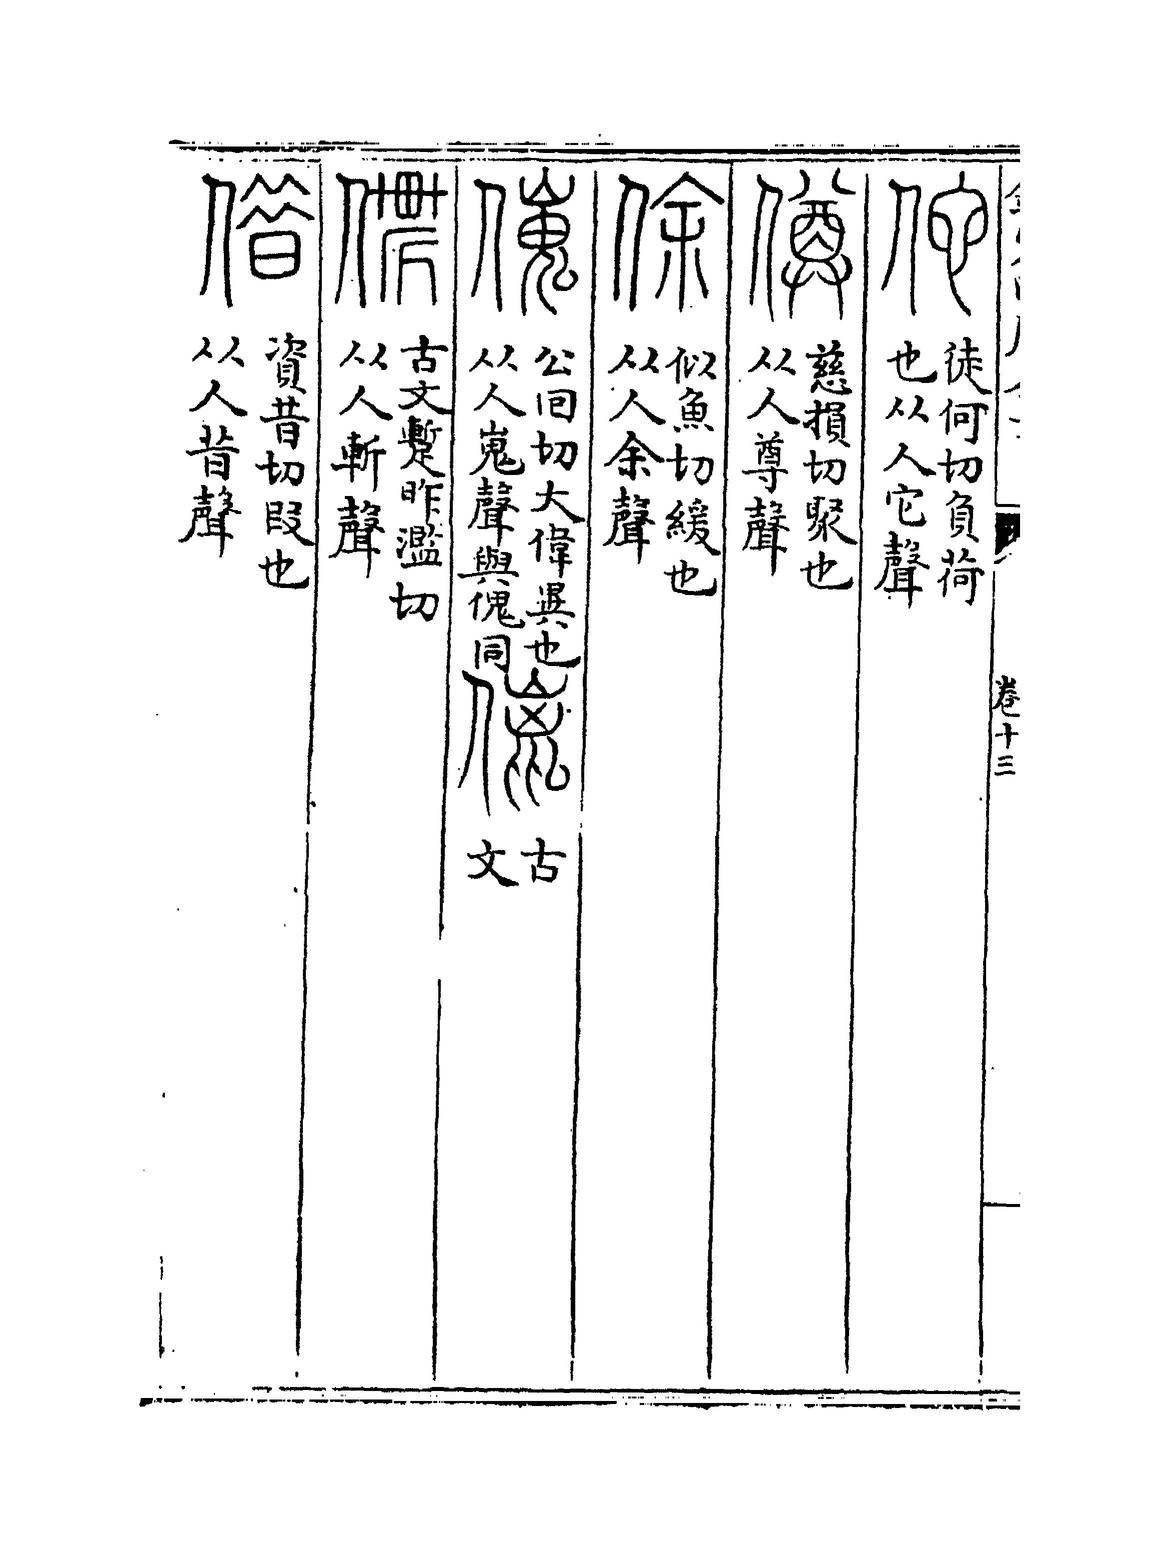 佗
徒何切負荷
也从人它聲
僔
慈損切聚也
从人尊聲
俆
似魚切緩也
从人余聲
傀
公回切大偉異也
从人嵬聲與傀同
古
文
古文蹔昨濫切
从人斬聲
借
資昔切叚也
从人昔聲
卷十三